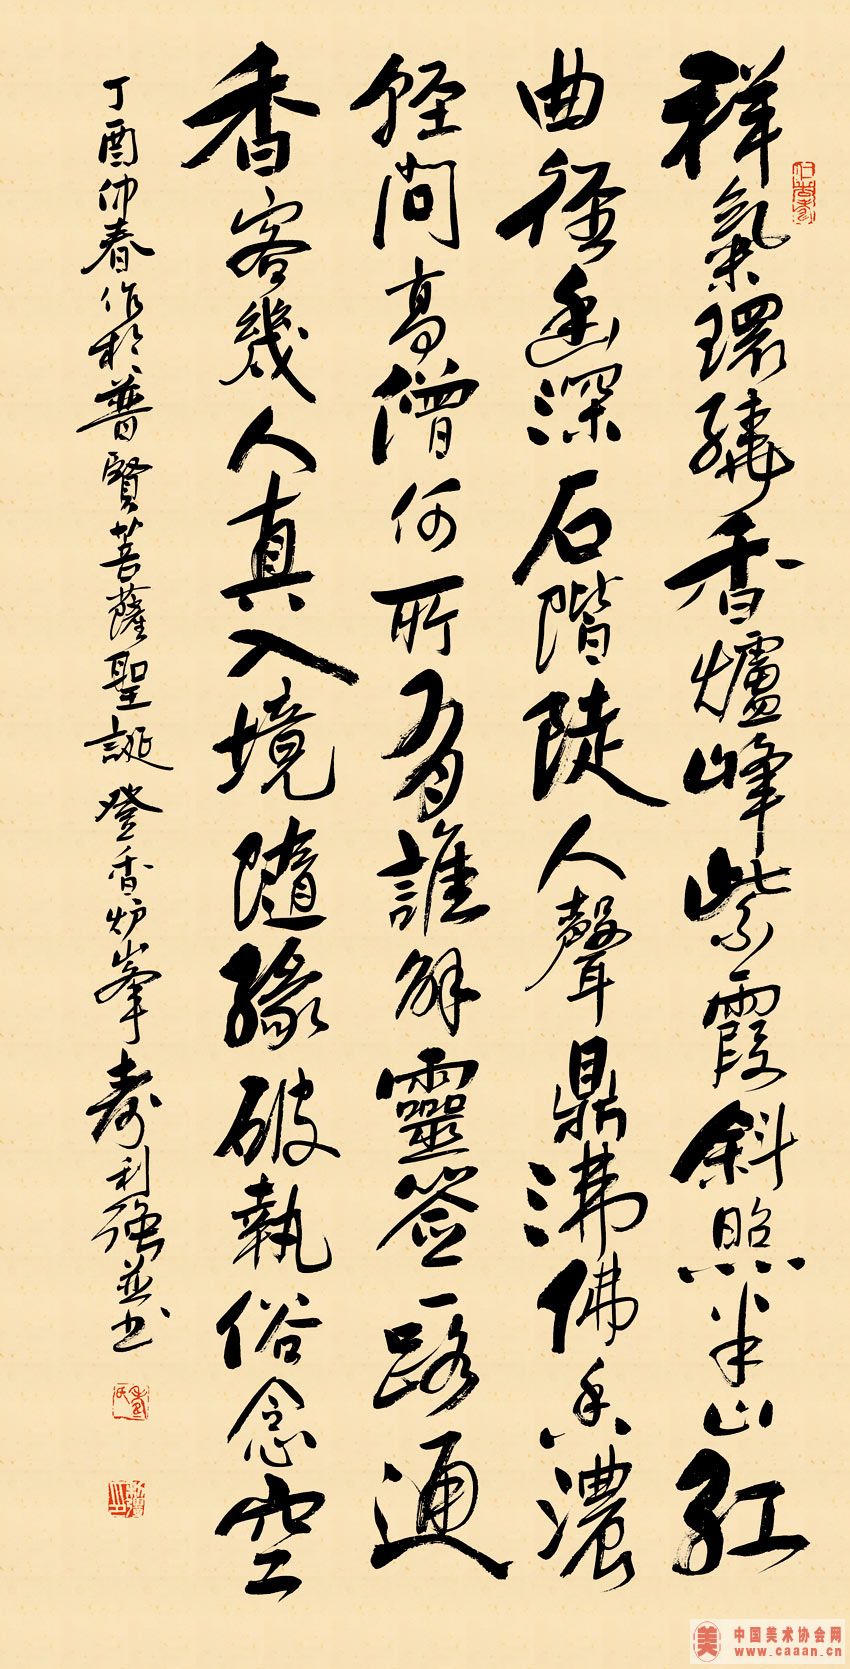 祥氣環繞香爐峰紫霞斜照半山紅
曲徑幽深石階陡人聲鼎沸佛香濃
輕問高僧何所有誰解靈签一路通
香客幾人真入境隨緣破執俗念空
丁酉仲春作於普賢菩薩聖誕登香炉峯壽利強並书
美
中国美术协会网
www.caaan.cn